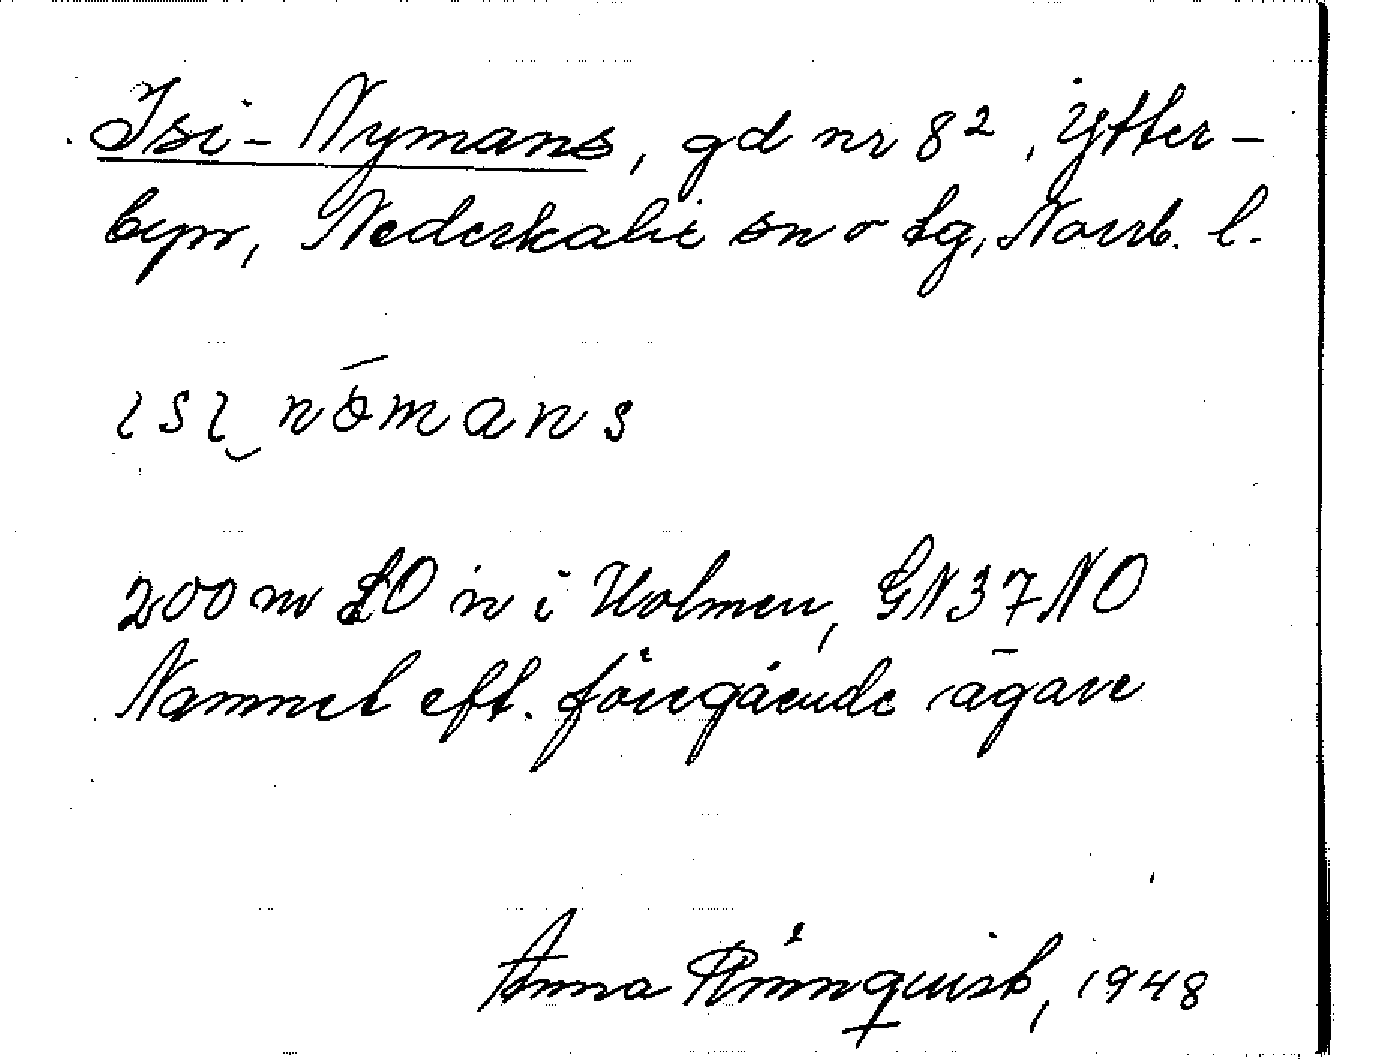 Isi-Nymans, gd nr 8², Ytter-
byn, Nederkalix sn o tg, Norrb. l.
ısı nömans
200 m SO in i Holmen, GN37NO
Namnet eft. föregående ägare
Anna Rönnquist, 1948